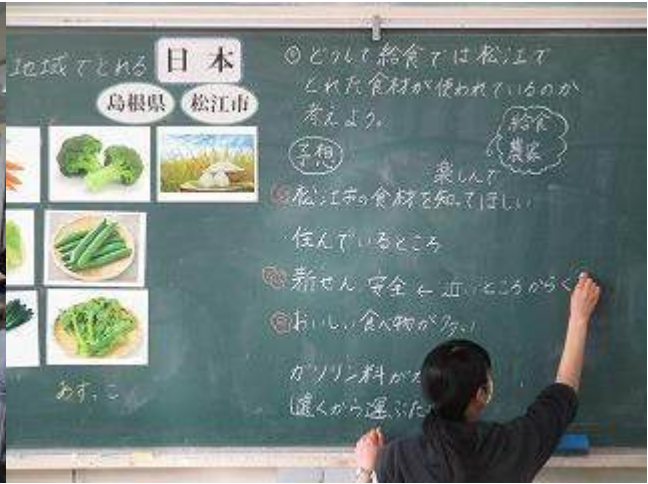 地域でとれる
日本
島根県
松江市
あすっこ
◎どうして給食では松江で
とれた食材が使われているのか
考えよう。
給食
農家
予想
楽しんで
松江市の食材を知ってほしい
住んでいるところ
新せん 安全 ← 近いところから
おいしい食べ物が多い
ガソリン料が
遠くから運ぶた